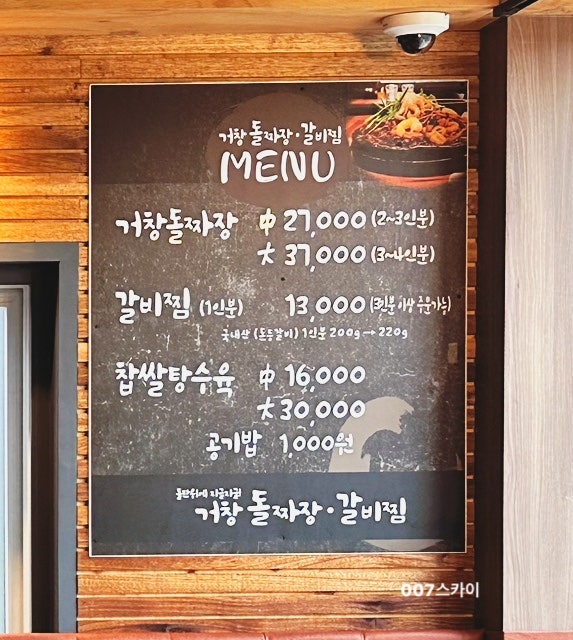 거창 돌짜장·갈비찜
MENU
거창돌짜장 中 27,000 (2~3인분)
大 37,000 (3~4인분)
갈비찜 (1인분) 13,000 (3인분 이상 주문가능)
국내산 (돈등갈비) 1인분 200g → 220g
찹쌀탕수육 中 16,000
大 30,000
공기밥 1,000원
돌판위에 지글지글!
거창 돌짜장·갈비찜
007스카이